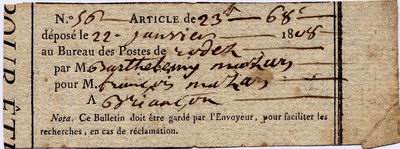 N.º 56 ARTICLE de 23ᶠᶠ 68ᶜ
déposé le 22 janvier 1808
au Bureau des Postes de rodez
par M. Barthelemy mazars
pour M. françois mazars
A Briançon
Nota. Ce Bulletin doit être gardé par l'Envoyeur, pour faciliter les
recherches, en cas de réclamation.
POUR ÊTR